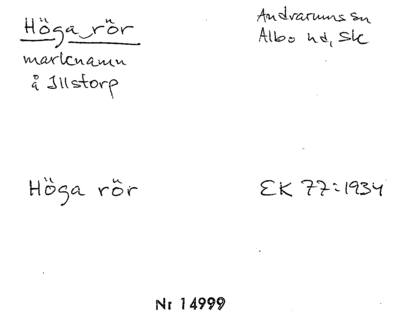 Höga rör
Andrarums sn
Albo hd, Sk
marknamn
å Illstorp
Höga rör
EK 77:1934
Nr 14999